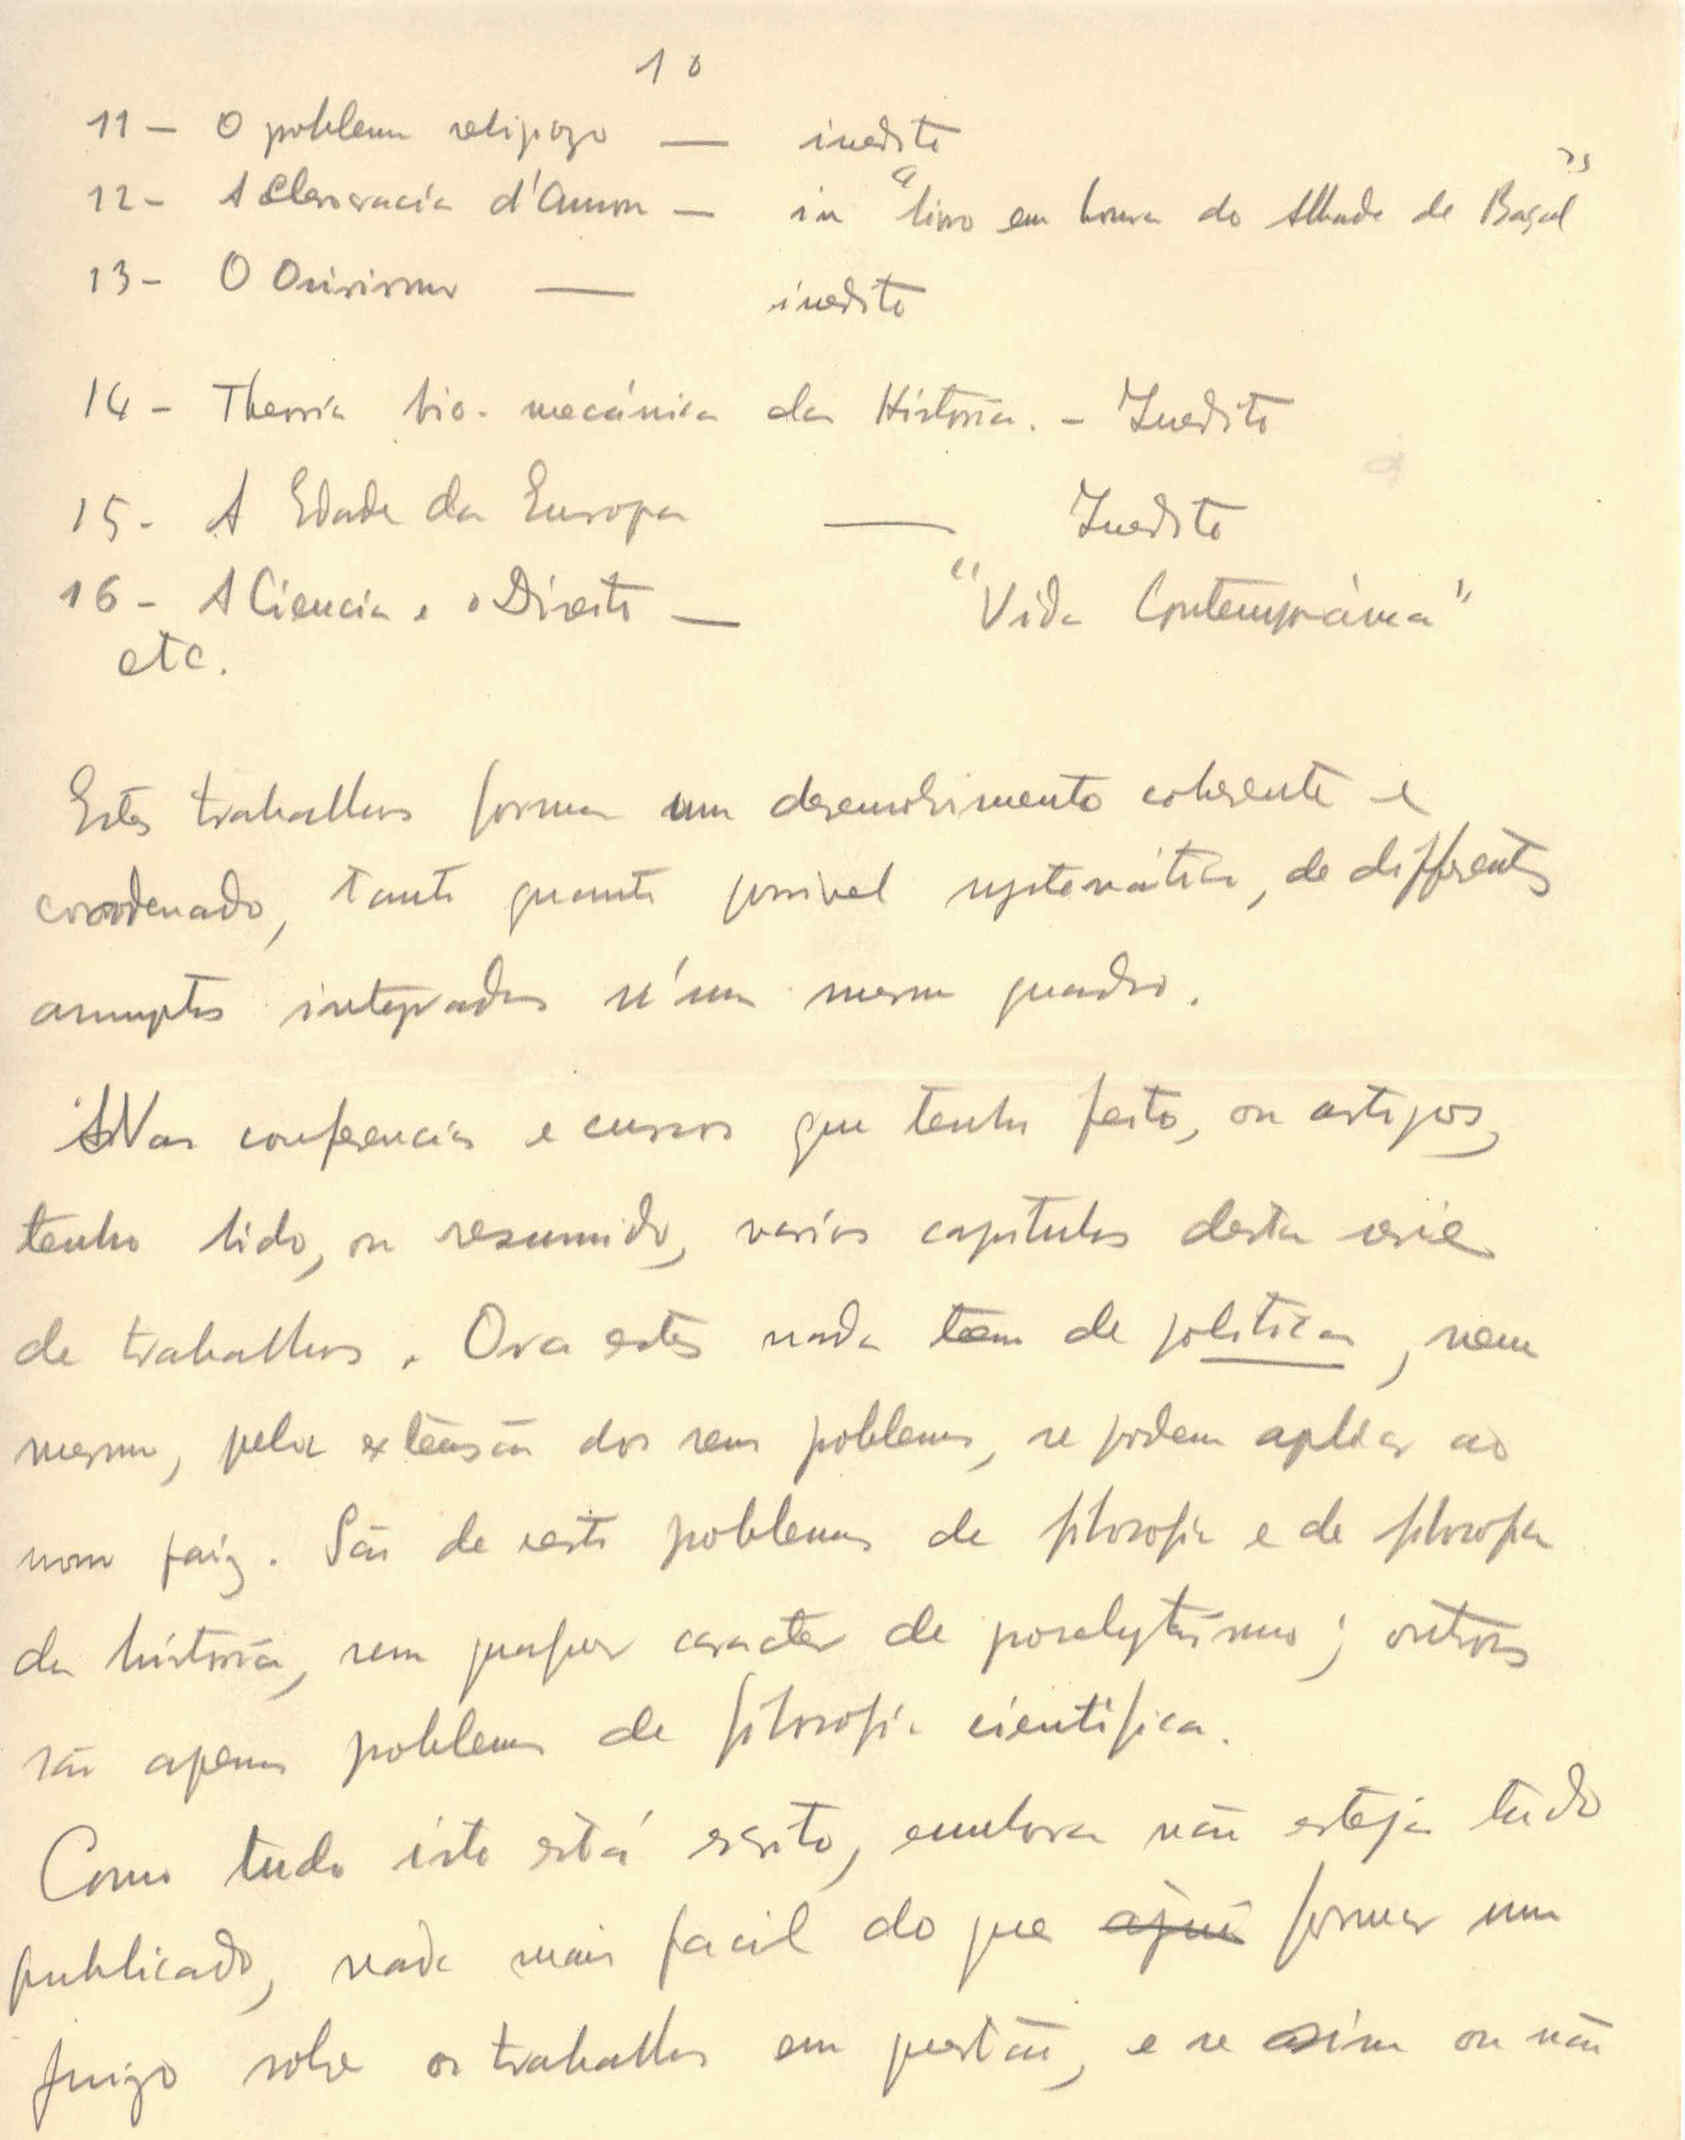 10
11 – O problema religiozo — inedito
12 – A Clerocracia d'Amon — in "livro em honra do Abbade de Baçal"
13 – O Osirismo — inedito
14 – Theoria bio-mecánica da História. – Inedito
15 – A Edade da Europa — Inedito
16 – A Ciencia e o Direito — "Vida Contemporánea"
etc.
Estes trabalhos formam um desenvolvimento coherente e
coordenado, tanto quanto possivel systemático, de differentes
assumptos integrados n'um mesmo quadro.
Nas conferencias e cursos que tenho feito, ou artigos,
tenho lido, ou resumido, varios capitulos desta serie
de trabalhos. Ora estes nada tem de politica, nem
mesmo, pela extensão dos seus problemas, se podem aplicar ao
nosso paiz. São de resto problemas de filosofia e de filosofia
da história, sem qualquer caracter de proselytismo; outros
são apenas problemas de filosofia cientifica.
Como tudo isto está escrito, embora não esteja tudo
publicado, nada mais facil do que aqui formar um
juizo sobre os trabalhos em questão, e se assim ou não